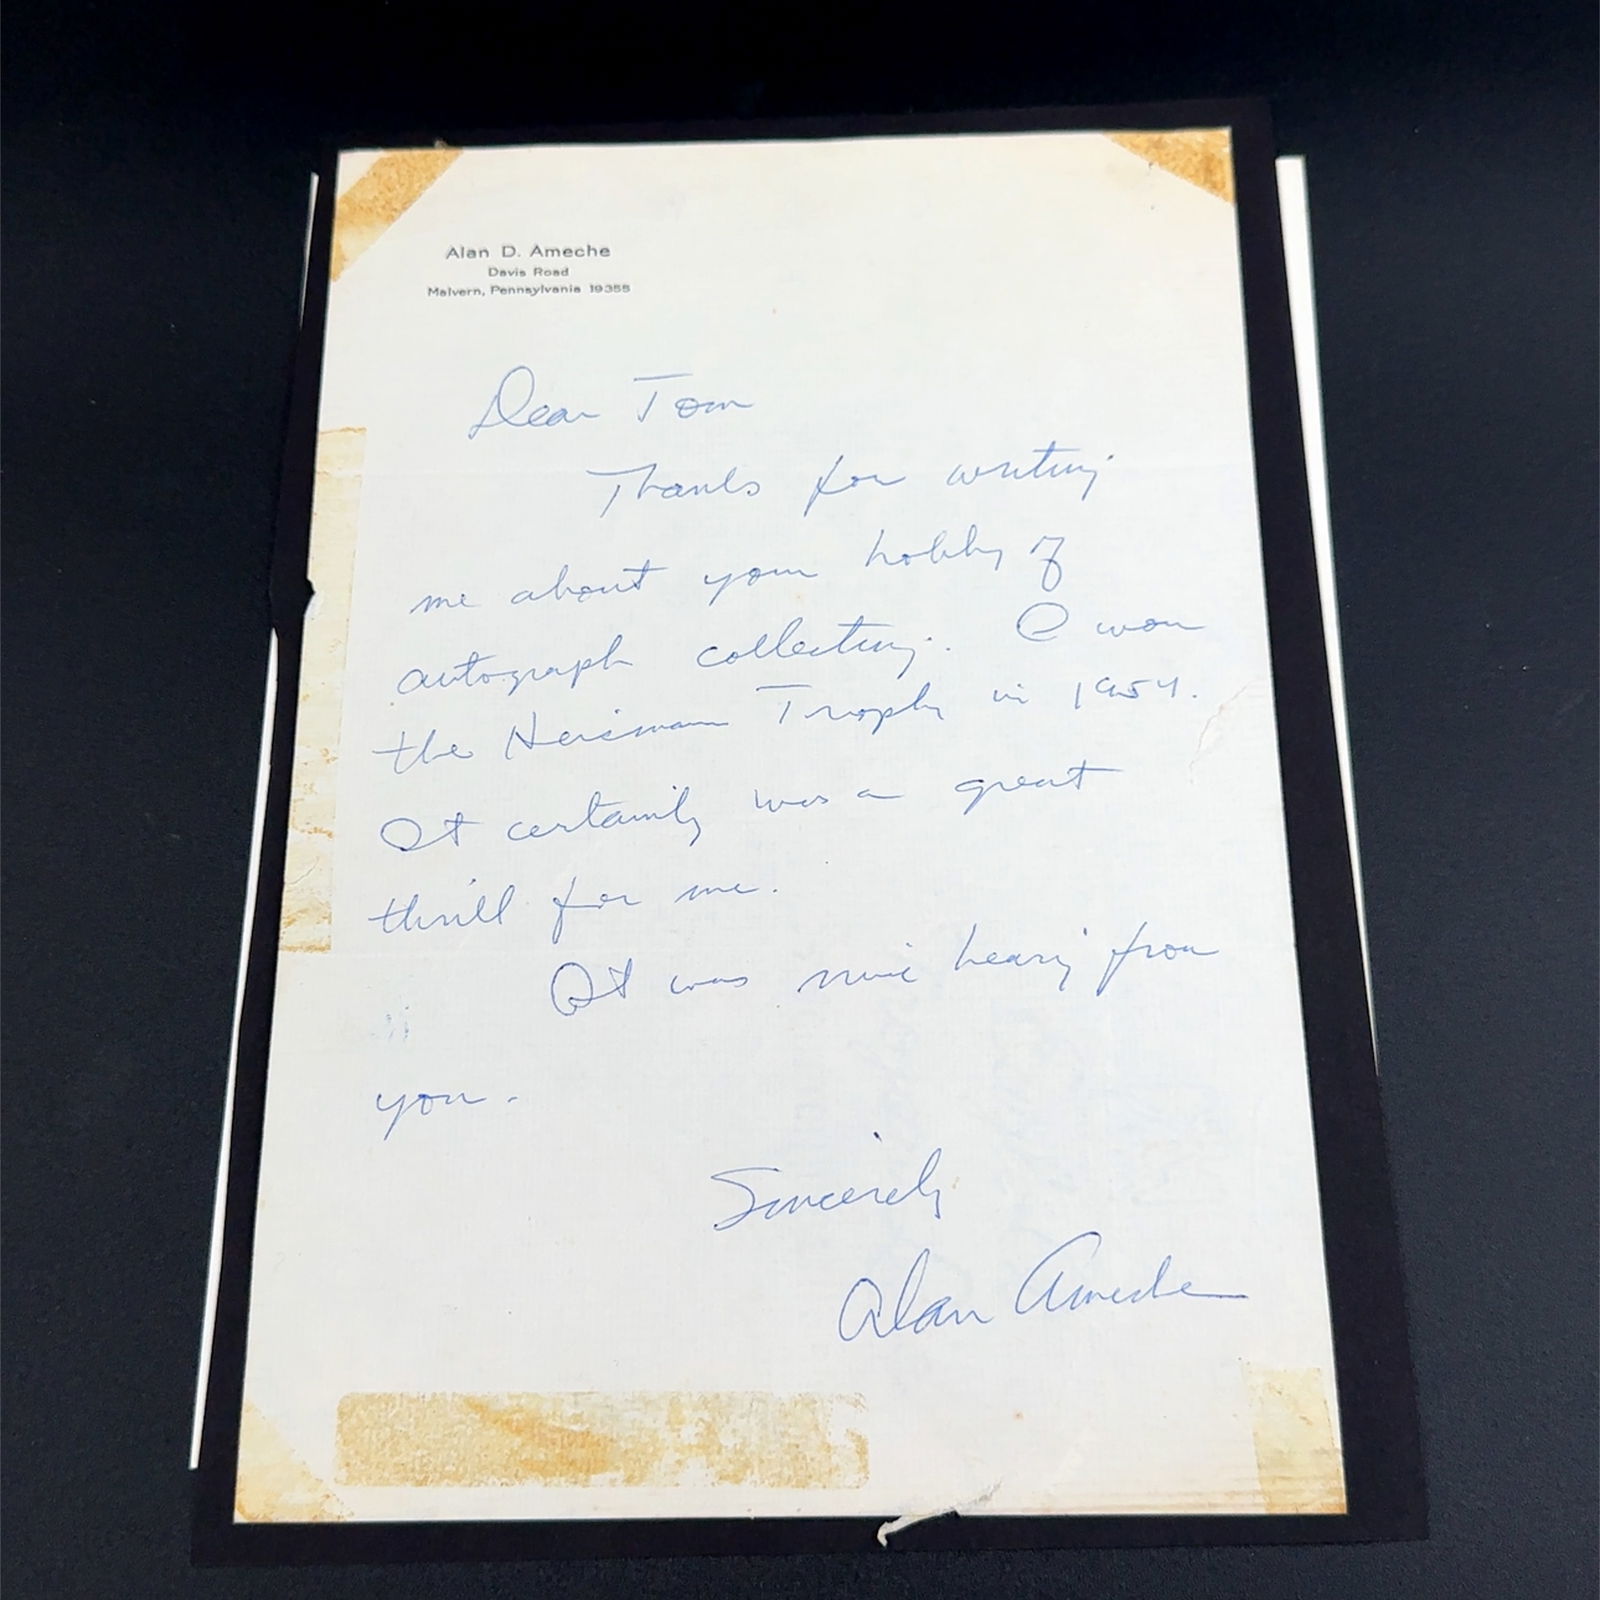 Alan D. Ameche
Davis Road
Malvern, Pennsylvania 19355
Dear Tom
Thanks for writing
me about your hobby of
autograph collecting. I won
the Heisman Trophy in 1954.
It certainly was a great
thrill for me.
It was nice hearing from
you.
Sincerely
Alan Ameche